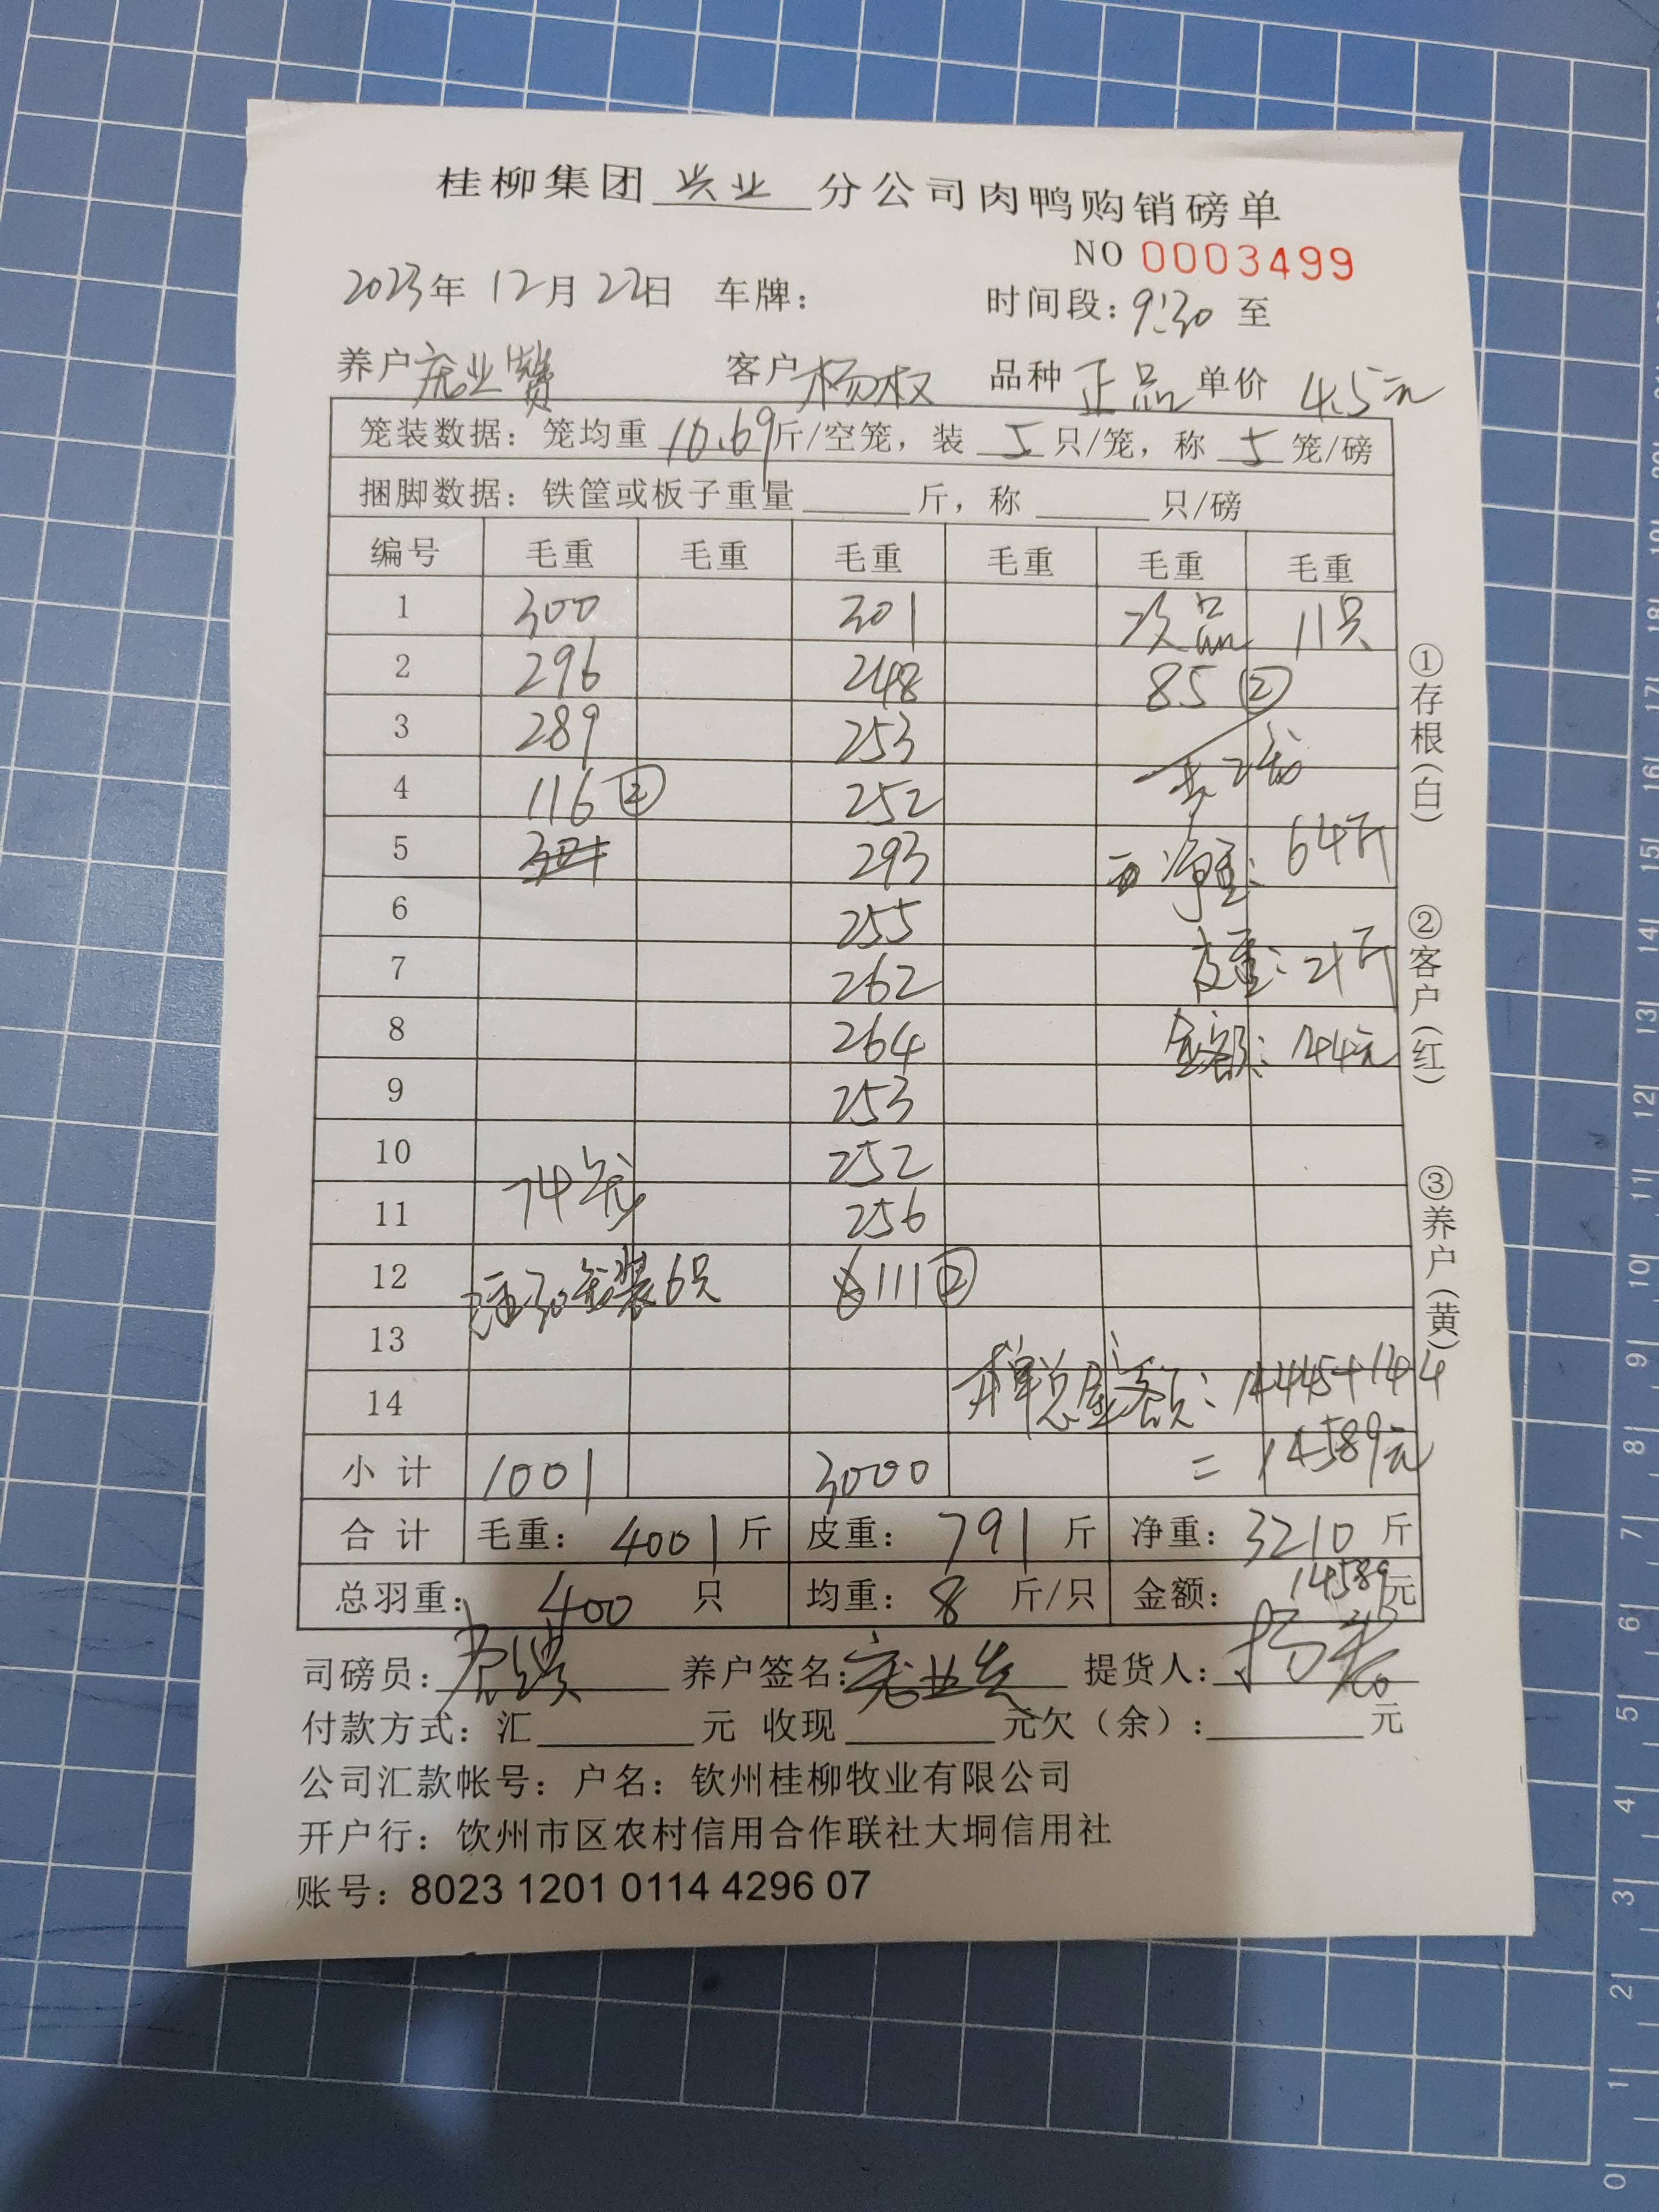 桂柳集团 兴业 分公司肉鸭购销磅单
NO 0003499
2023年 12月 22日 车牌： 时间段：9:30 至
养户 庞业赞 客户 杨权 品种 正品 单价 4.5元
笼装数据：笼均重 10.69 斤/空笼，装 5 只/笼，称 5 笼/磅
捆脚数据：铁筐或板子重量 斤，称 只/磅
编号 毛重 毛重 毛重 毛重 毛重 毛重
1 300 301 次品 11只
2 296 248 85 ②
3 289 253
4 116 ② 252 共2笼
5 293 净重：64斤
6 255
7 262 皮重：21斤
8 264 金额：144元
9 253
10 252
11 74笼 256
12 注：30笼装6只 111 ②
13
14 本单总金额：14445+144
小计 1001 3000 = 14589元
合计 毛重： 4001 斤 皮重： 791 斤 净重： 3210 斤
总羽重： 400 只 均重： 8 斤/只 金额： 14589 元
司磅员： 养户签名： 提货人：
付款方式：汇 元 收现 元欠（余）： 元
公司汇款帐号：户名：钦州桂柳牧业有限公司
开户行：饮州市区农村信用合作联社大垌信用社
账号：8023 1201 0114 4296 07
①存根（白）
②客户（红）
③养户（黄）
0 1 2 3 4 5 6 7 8 9 10 11 12 13 14 15 16 17 18 19